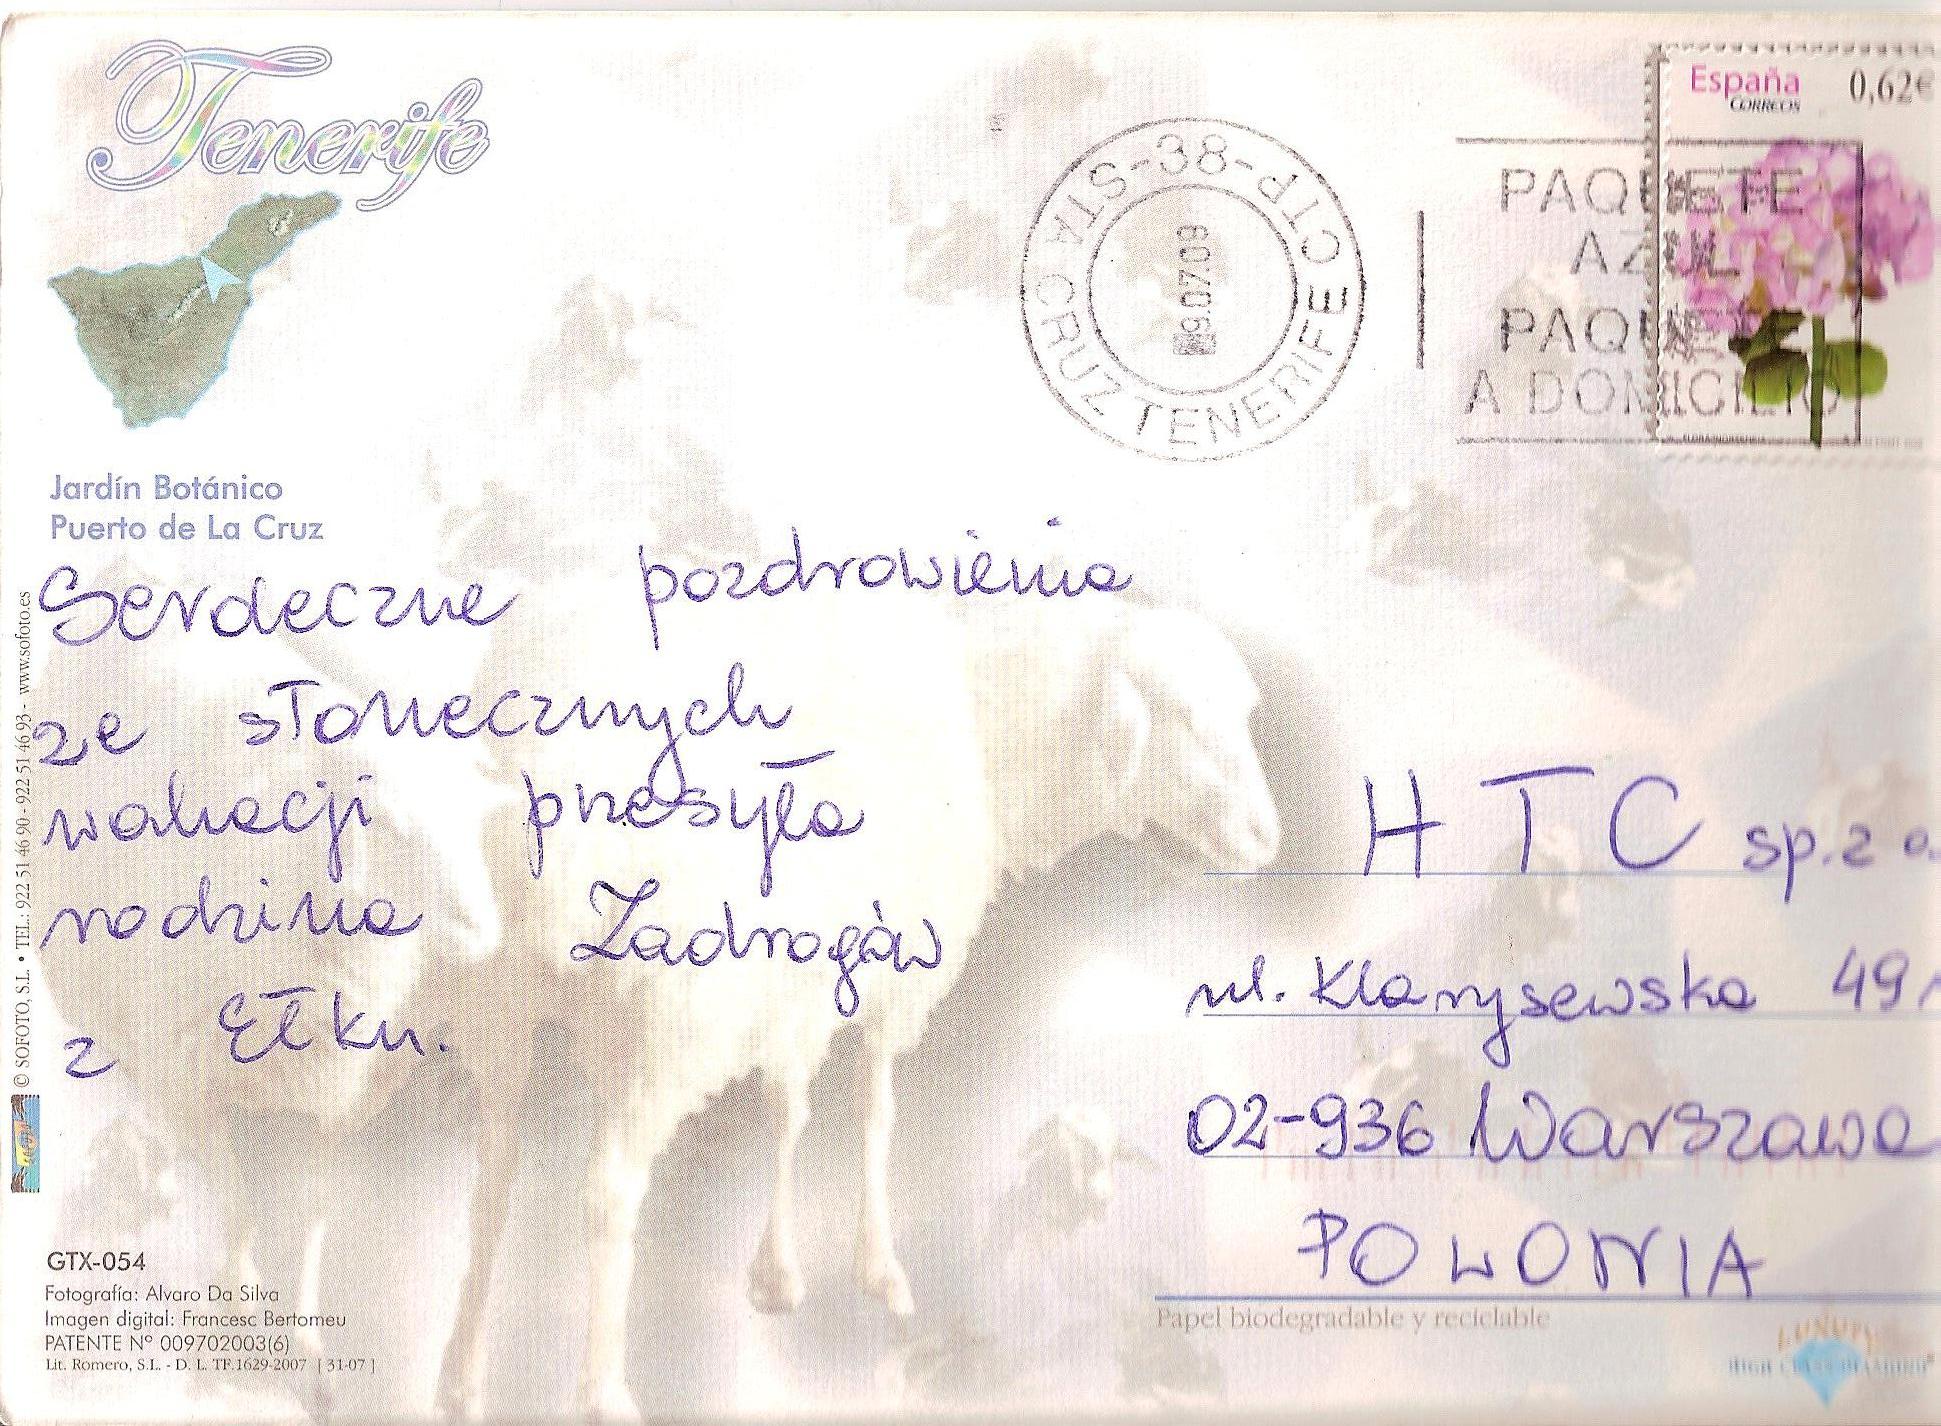 Tenerife
Jardín Botánico
Puerto de La Cruz
España
CORREOS
0,62€
38-CTP
STA CRUZ TENERIFE
9.07.09
PAQUETE
AZUL
A DOMICILIO
Serdeczne pozdrowienia
ze słonecznych
wakacji przesyła
rodzina Zadrogów
z Ełku.
HTC sp. z o.
ul. Klarysewska 49
02-936 Warszawa
POLONIA
© SOFOTO, S.L. • TEL.: 922 51 46 90 - 922 51 46 93 - www.sofoto.es
GTX-054
Fotografía: Alvaro Da Silva
Imagen digital: Francesc Bertomeu
PATENTE Nº 009702003(6)
Lit. Romero, S.L. - D. L. TF.1629-2007 [ 31-07 ]
Papel biodegradable y reciclable
LUXURY